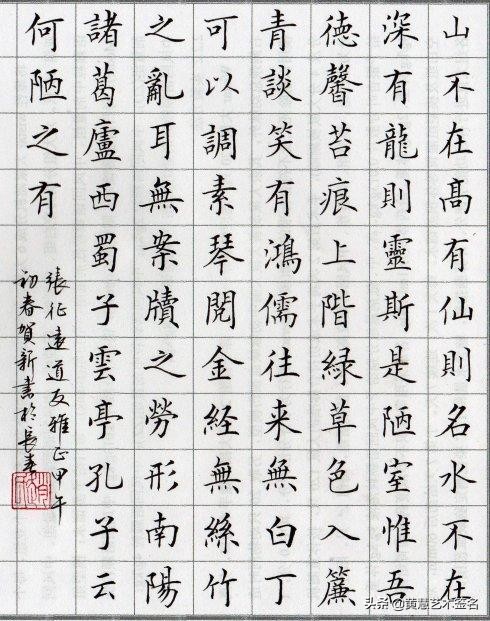 山不在髙有仙則名水不在
深有龍則靈斯是陋室惟吾
徳馨苔痕上階緑草色入簾
青談笑有鴻儒往来無白丁
可以調素琴閲金経無絲竹
之亂耳無案牘之勞形南陽
諸葛廬西蜀子雲亭孔子云
何陋之有
張征遠道友雅正甲午
初春賀新書於長春
头条 @黄慧艺术签名